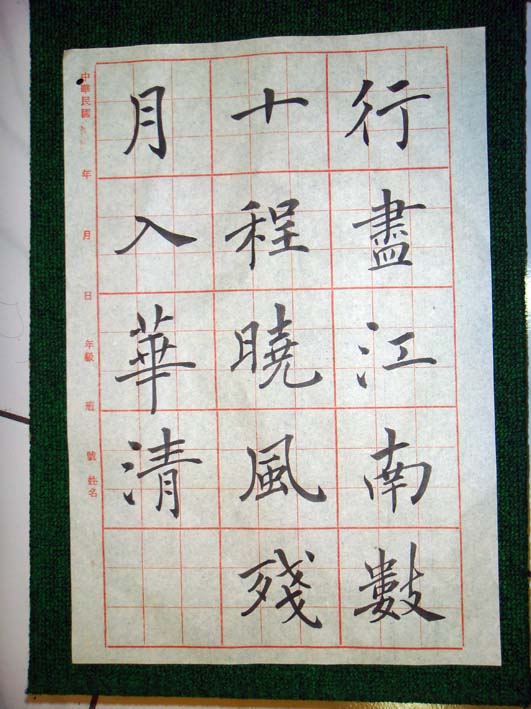 行盡江南數
十程曉風殘
月入華清
中華民國 年 月 日 年級 班 號 姓名